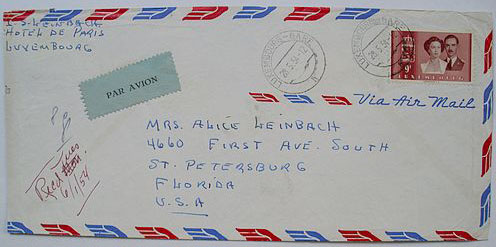 I.S. LEINBACH
HOTEL DE PARIS
LUXEMBOURG
PAR AVION
LUXEMBOURG-GARE
LUXEMBOURG-GARE
Via Air Mail
MRS. ALICE LEINBACH
4660 FIRST AVE. SOUTH
ST. PETERSBURG
FLORIDA
U.S.A
Recd Tues
6/1/54